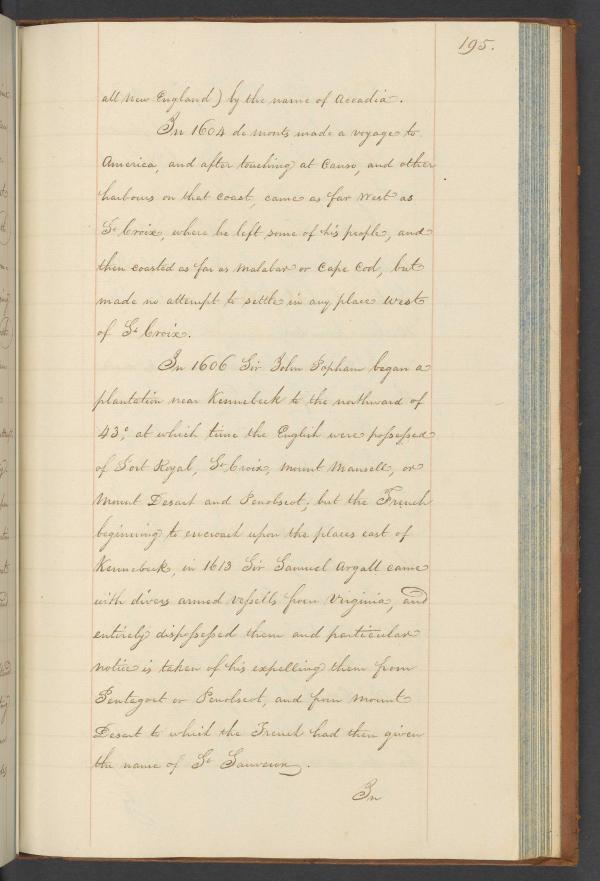 195.
all New England) by the name of Accadia.
In 1604 de monts made a voyage to
America, and after touching at Canso, and other
harbours on that Coast, came as far West as
St Croix, where he left some of his people, and
then coasted as far as Malabar or Cape Cod, but
made no attempt to settle in any place West
of St Croix.
In 1606 Sir John Popham began a
plantation near Kennebeck to the northward of
43°, at which time the English were possessed
of Port Royal, St Croix, Mount Mansell, or
Mount Desart and Penobscot, but the French
beginning to encroach upon the places east of
Kennebeck, in 1613 Sir Samuel Argall came
with divers armed vessells from Virginia, and
entirely dispossessed them and particular
notice is taken of his expelling them from
Pentegoet or Penobscot, and from Mount
Desart to which the French had then given
the name of St Sauveur.
In